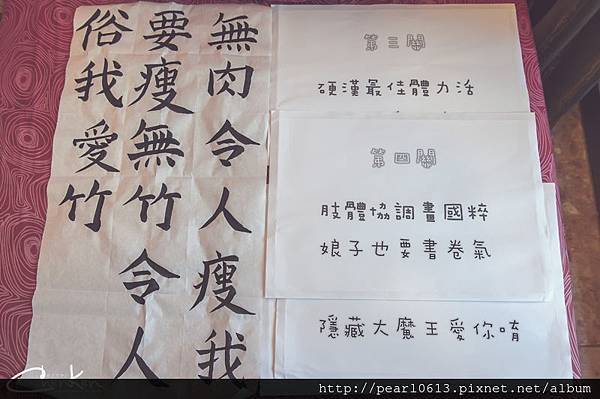 無肉令人瘦我
要瘦無竹令人
俗我愛竹
第三關
硬漢最佳體力活
第四關
肢體協調畫國粹
娘子也要書卷氣
隱藏大魔王愛你唷
http://pearl0613.pixnet.net/album